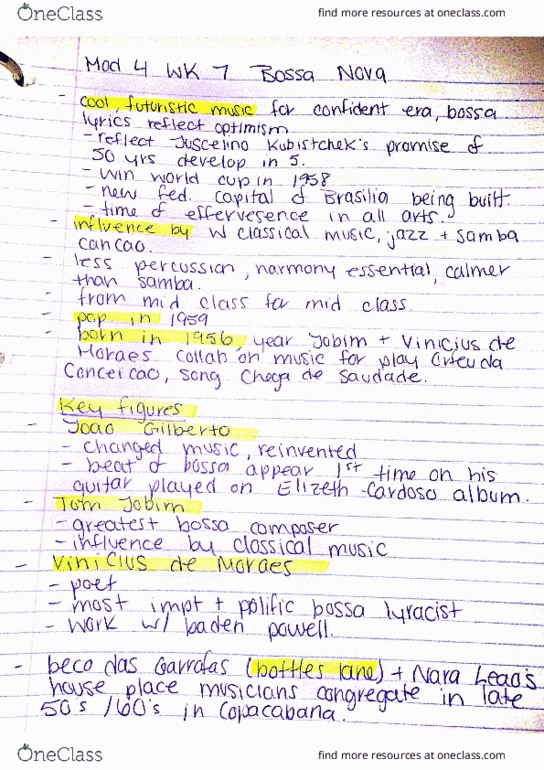 OneClass
find more resources at oneclass.com
Mod 4 WK 7 Bossa Nova
- cool, futuristic music for confident era, bossa
lyrics reflect optimism
- reflect Juscelino Kubistchek's promise of
50 yrs develop in 5.
- win world cup in 1958
- new fed. capital of Brasilia being built.
- time of effervesence in all arts.
- influence by W classical music, jazz + samba
cancao.
- less percussion, harmony essential, calmer
than samba.
- from mid class for mid class.
- pop in 1959
- born in 1956, year Jobim + Vinicius de
Moraes collab on music for play Orfeu da
Conceicao, song Chega de Saudade.
Key figures
- Joao Gilberto
- changed music, reinvented
- beat of bossa appear 1st time on his
guitar played on Elizeth Cardoso album.
- Tom Jobim
- greatest bossa composer
- influence by classical music
- Vinicius de Moraes
- poet
- most impt + polific bossa lyracist
- work w/ baden powell.
- beco das Garrafas (bottles lane) + Nara Leao's
house place musicians congregate in late
50's /60's in Copacabana.
OneClass
find more resources at oneclass.com